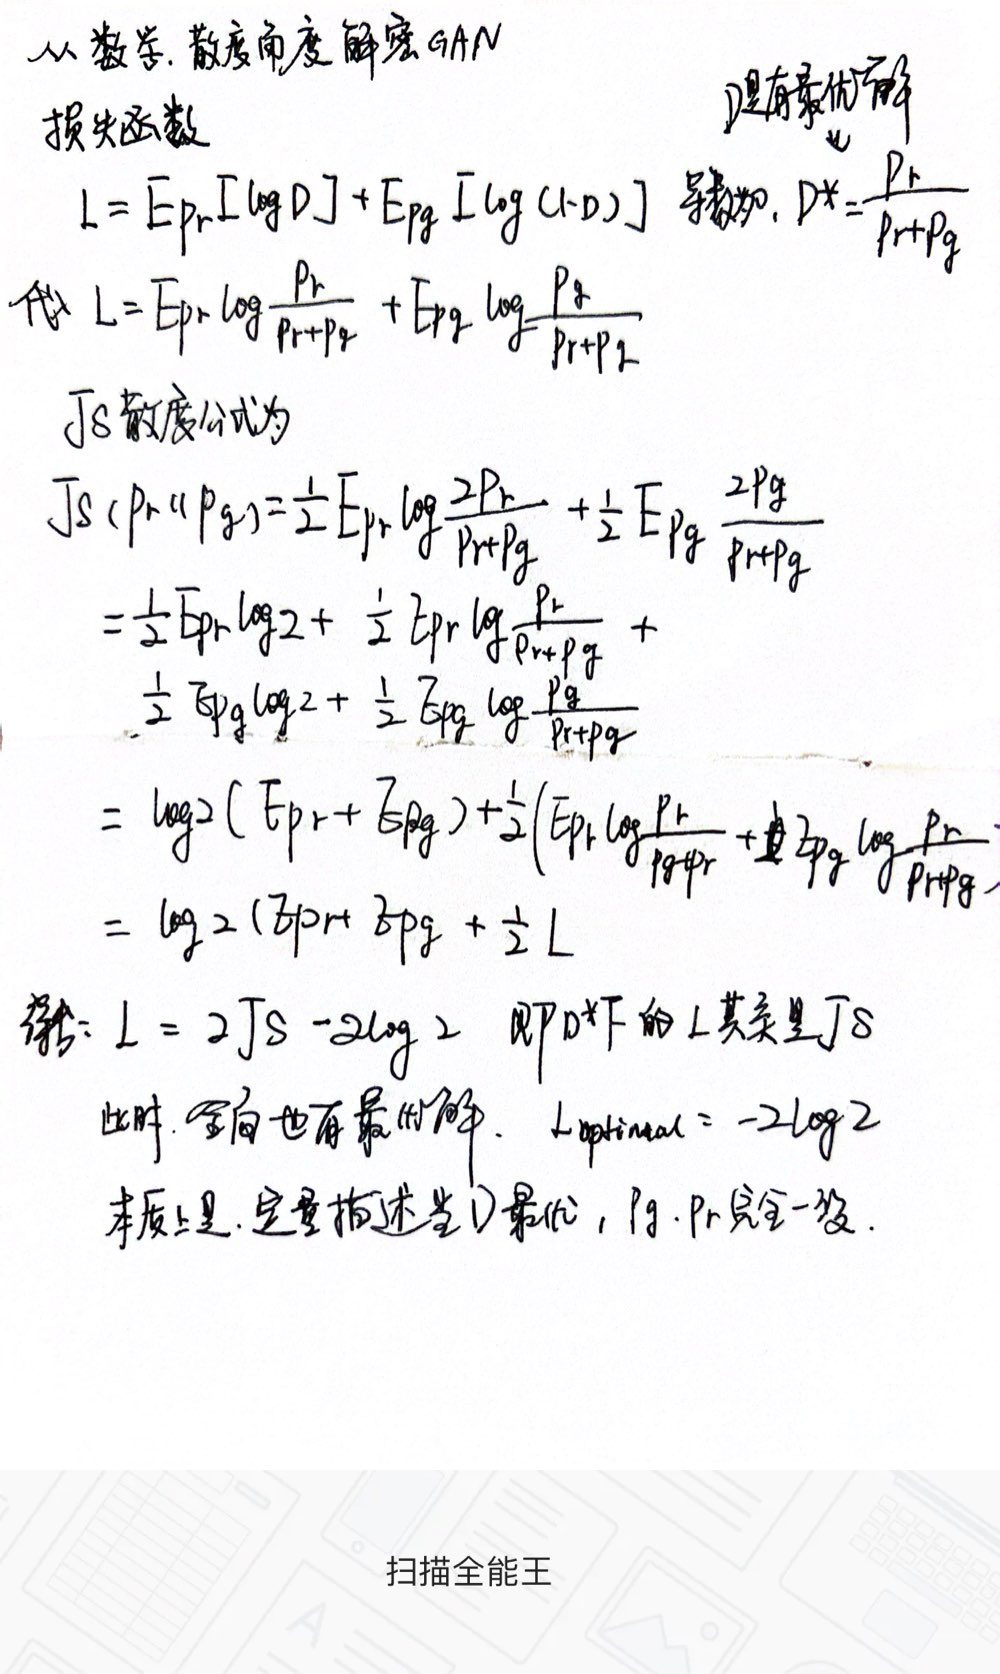 从数学.散度角度解密GAN
D是有最优解
损失函数 ↓
L = E_pr[log D] + E_pg[log(1-D)] 导数为0, D* = Pr/(Pr+Pg)
代入 L = E_pr log Pr/(Pr+Pg) + E_pg log Pg/(Pr+Pg)
JS散度公式为
JS(Pr||Pg) = 1/2 E_pr log 2Pr/(Pr+Pg) + 1/2 E_pg 2Pg/(Pr+Pg)
= 1/2 E_pr log2 + 1/2 E_pr log Pr/(Pr+Pg) +
1/2 E_pg log2 + 1/2 E_pg log Pg/(Pr+Pg)
= log2(E_pr + E_pg) + 1/2(E_pr log Pr/(Pg+Pr) + E_pg log Pr/(Pr+Pg))
= log2(E_pr+ E_pg + 1/2 L
: L = 2JS - 2log2 即D*下的L其实是JS
此时.全局也有最优解. Loptimal = -2log2
本质上是.定量描述当D最优, Pg.Pr完全一致.
扫描全能王